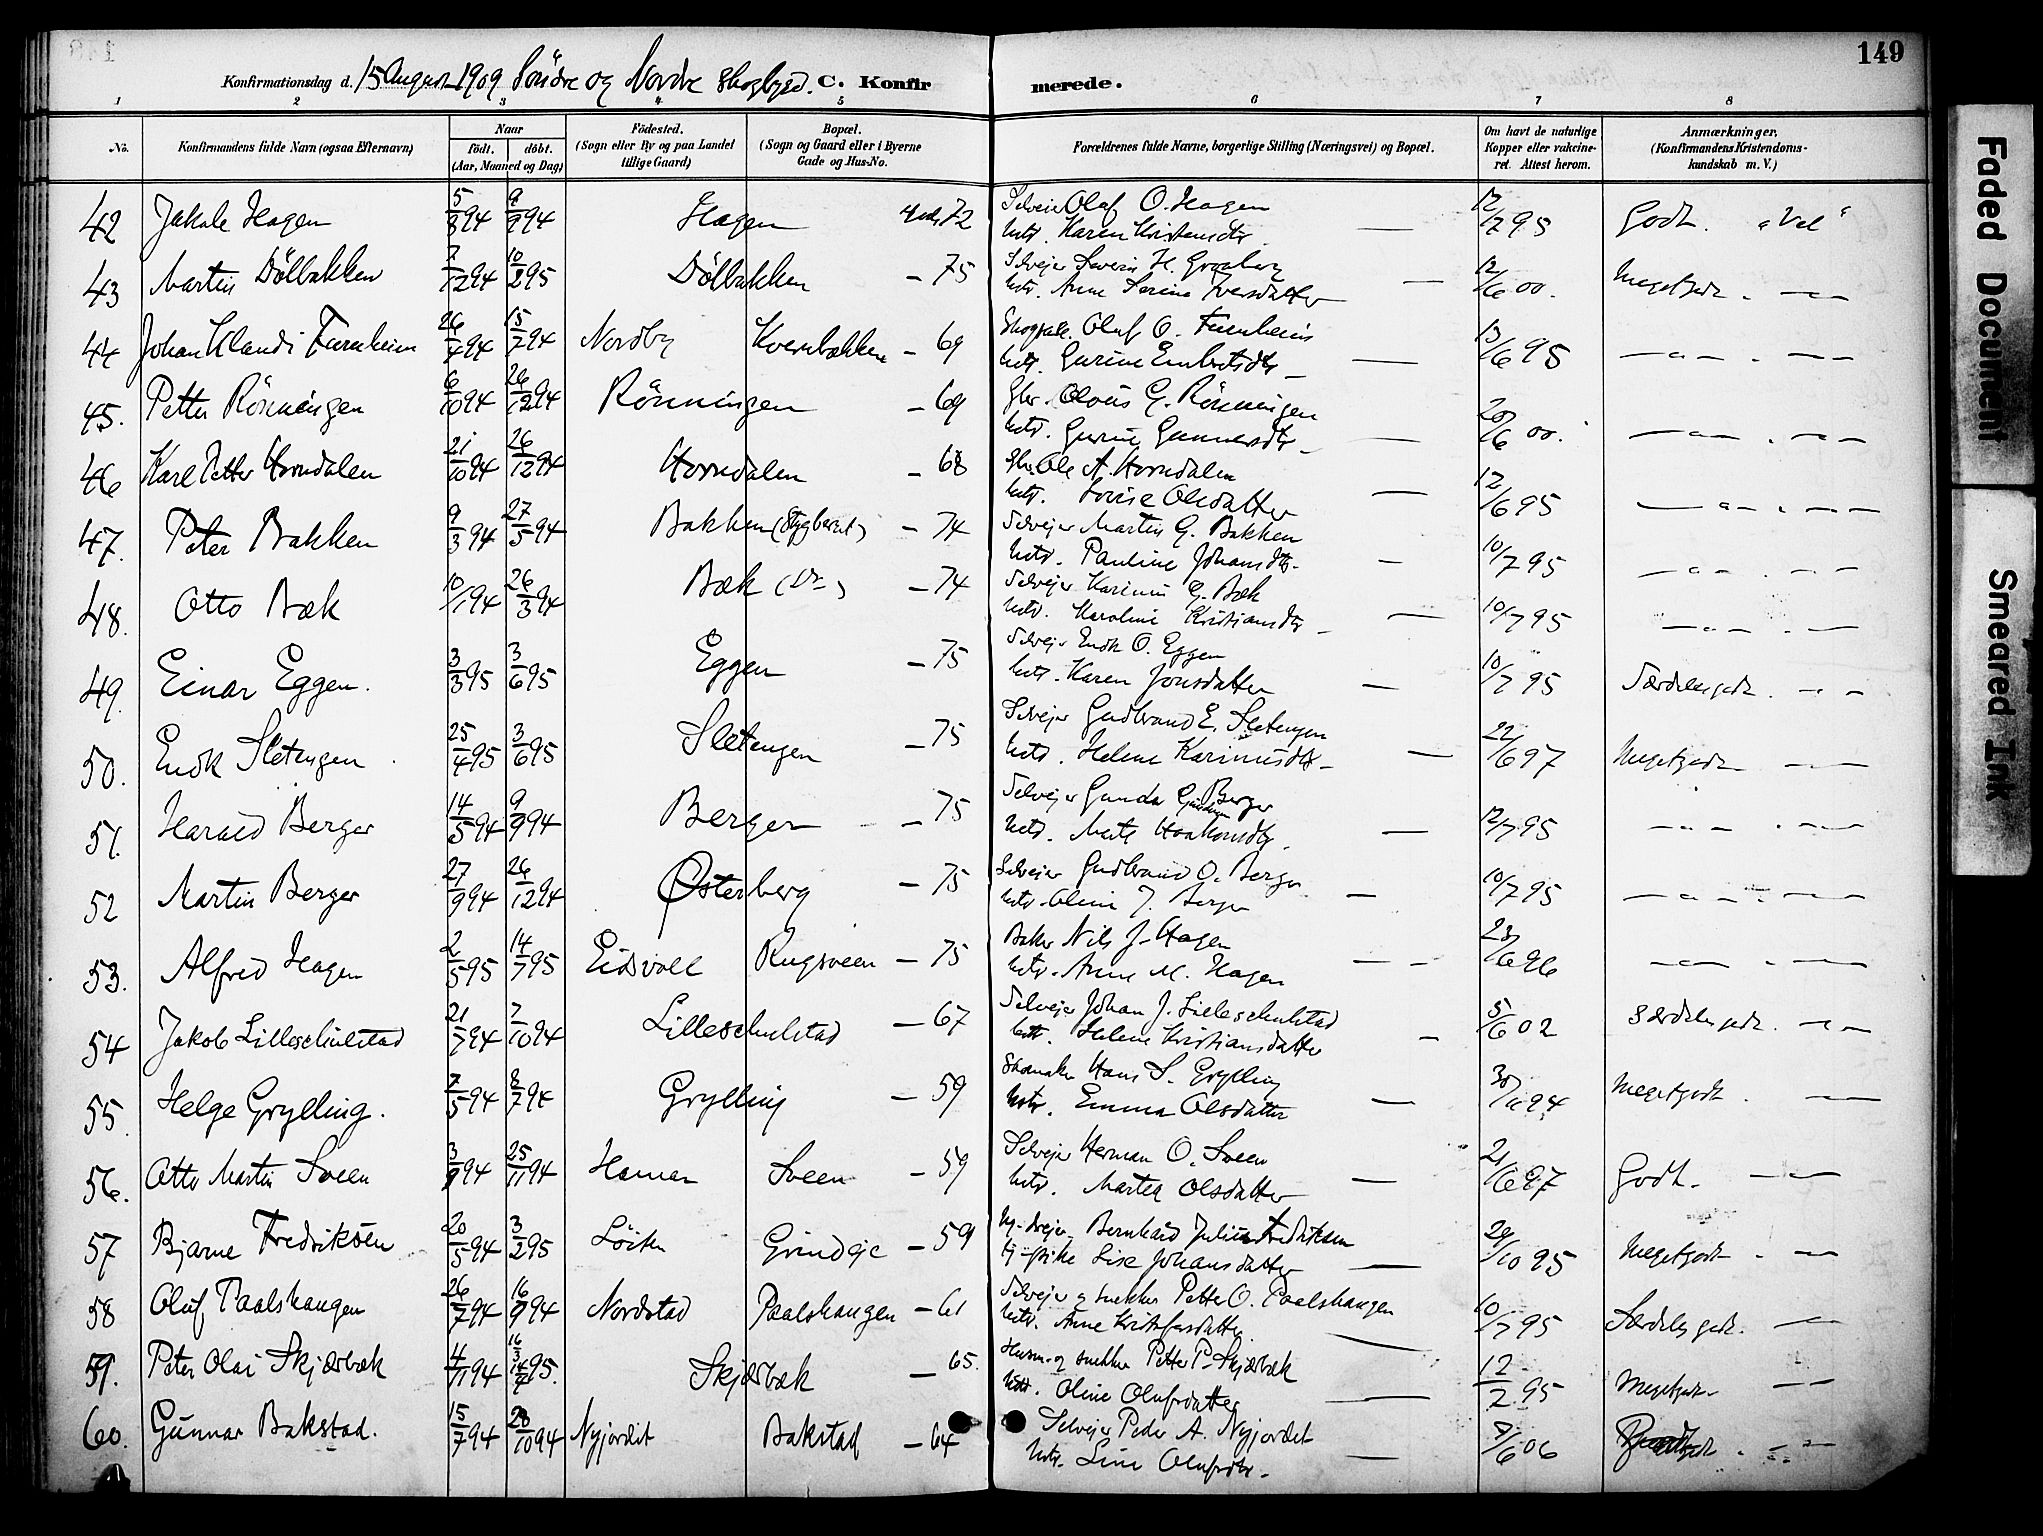 149
Konfirmationsdag d. 15 August 1909 Söndre og Nordre Skogbygd. C. Konfirmerede.
1 2 3 4 5 6 7 8
No. Konfirmandens fulde Navn (ogsaa Efternavn) Naar födt. döbt. (Aar, Maaned og Dag) Födested. (Sogn eller By og paa Landet tillige Gaard) Bopæl. (Sogn og Gaard eller i Byerne Gade og Hus-No. Forældrenes fulde Navne, borgerlige Stilling (Næringsvei) og Bopæl. Om havt de naturlige Kopper eller vakcineret. Attest herom. Anmærkninger. (Konfirmandens Kristendomskundskab m. V.)
42 Jakob Hagen 5/8 94 9/9 94 Hagen 72 Selveier Olaf O. Hagen 12/7 95 Godt. "Vel"
Hstr. Karen Kristensdtr. —
43 Martin Dölbakken 7/12 94 10/2 95 Dölbakken – 75 Selveier Severin H. Grasberg 12/6 00. Megetgodt. — " —
Hstr. Anne Serine Iversdatter —
44 Johan Klaudi Furnheim 26/4 94 15/7 94 Nordby Kvernbakken – 69 Oluf O. Furnheim 13/6 95 — " — . — —
Hstr. Gurine Embretsdtr. —
45. Petter Rönningen 6/10 94 26/12 94 Rönningen – 69 Gbr. Olous G. Rönningen 20/6 00. — " — . — " —
Hstr. Gurine Gunnersdtr. —
46 Karl Petter Horndalen 21/10 94 26/12 94 Horndalen – 68 Gbr. Ole A. Horndalen 12/6 95 — " — . — " —
Hstr. Lovise Olsdatter —
47. Peter Bakken 9/3 94 27/5 94 Bakken (Stygberet) – 74 Selveier Martin G. Bakken 10/7 95 — " — . — " —
Hstr. Pauline Johansdtr. —
48. Otto Bæk 10/1 94 26/3 94 Bæk (Do) – 74 Selveier Karinus G. Bæk 10/7 95 — " — . — " —
Hstr. Karoline Kristiansdtr —
49. Einar Eggen. 3/3 95 3/6 95 Eggen – 75 Selveier Endr. O. Eggen 10/7 95 Særdelesgodt. — " —
Hstr. Karen Jonsdatter —
50. Endr. Sletengen 25/4 95 3/6 95 Sletengen – 75 Selveier Gudbrand E. Sletengen 22/6 97 Megetgodt — " —
Hstr. Helene Karinusdtr —
51. Harald Berger 14/5 94 9/9 94 Berger – 75 Selveier Gunder Berger 12/7 95 — " — . — " —
Hstr. Marte Haakonsdtr. —
52 Martin Berger 27/9 94 26/12 94 Østerberg – 75 Selveier Gudbrand O. Berger 10/7 95 — " — . — " —
Hstr. Oline J. Berger —
53. Alfred Hagen 2/5 95 14/7 95 Eidsvoll Rugsveen – 75 Baker Nils J. Hagen 23/6 96 — " — . — " —
Hstr. Anne M. Hagen — —
54 Jakob Lilleschulstad 21/7 94 7/10 94 Lilleschulstad – 67 Selveier Johan J. Lilleschulstad 5/6 02 Særdelesgodt. — " —
Hstr. Helene Kristiansdatter —
55. Helge Grylling. 7/5 94 8/7 94 Grylling – 59 Skomaker Hans S. Grylling Megetgodt. —
Hstr. Emma Olsdatter —
56. Otto Martin Sveen 3/9 94 25/11 94 Hamar Sveen – 59 Selveier Herman O. Sveen 21/6 97 Godt. — " —
Hstr. Martea Olsdatter —
57 Bjarne Fredriksen 20/5 94 3/2 95 Löiten Grindeje – 59 Bernhard Julius Fredriksen 29/10 95 Megetgodt. — " —
Lise Johansdatter —
58 Oluf Paalshaugen 26/7 94 16/9 94 Nordstad Paalshaugen – 61 Selveier og snekker Petter O. Paalshaugen 10/7 95 Særdelesgodt. — " —
Hstr. Anne Kristofersdatter —
59. Peter Olai Skjærbæk 4/11 94 95. Skjærbæk – 65. Husm. og snekker Petter P. Skjærbæk 12/7 95 Megetgodt. — " —
Hstr. Oline Olufsdatter —
60. Gunnar Bakstad. 15/7 94 28/10 94 Nyjordet Bakstad – 64 Selveier Peder A. Nyjordet 7/6 06 — " —
Hstr. Line Olufsdtr. —
Faded Document
Smeared Ink